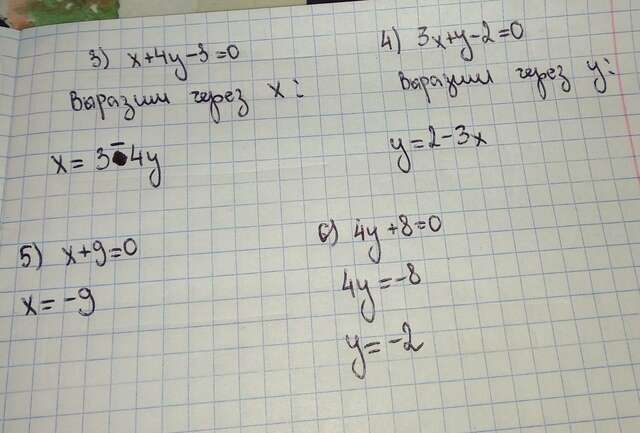 3) x+4y-3=0
Выразим через x:
x= 3-4y
4) 3x+y-2=0
Выразим через y:
y=2-3x
5) x+9=0
x=-9
6) 4y+8=0
4y=-8
y=-2